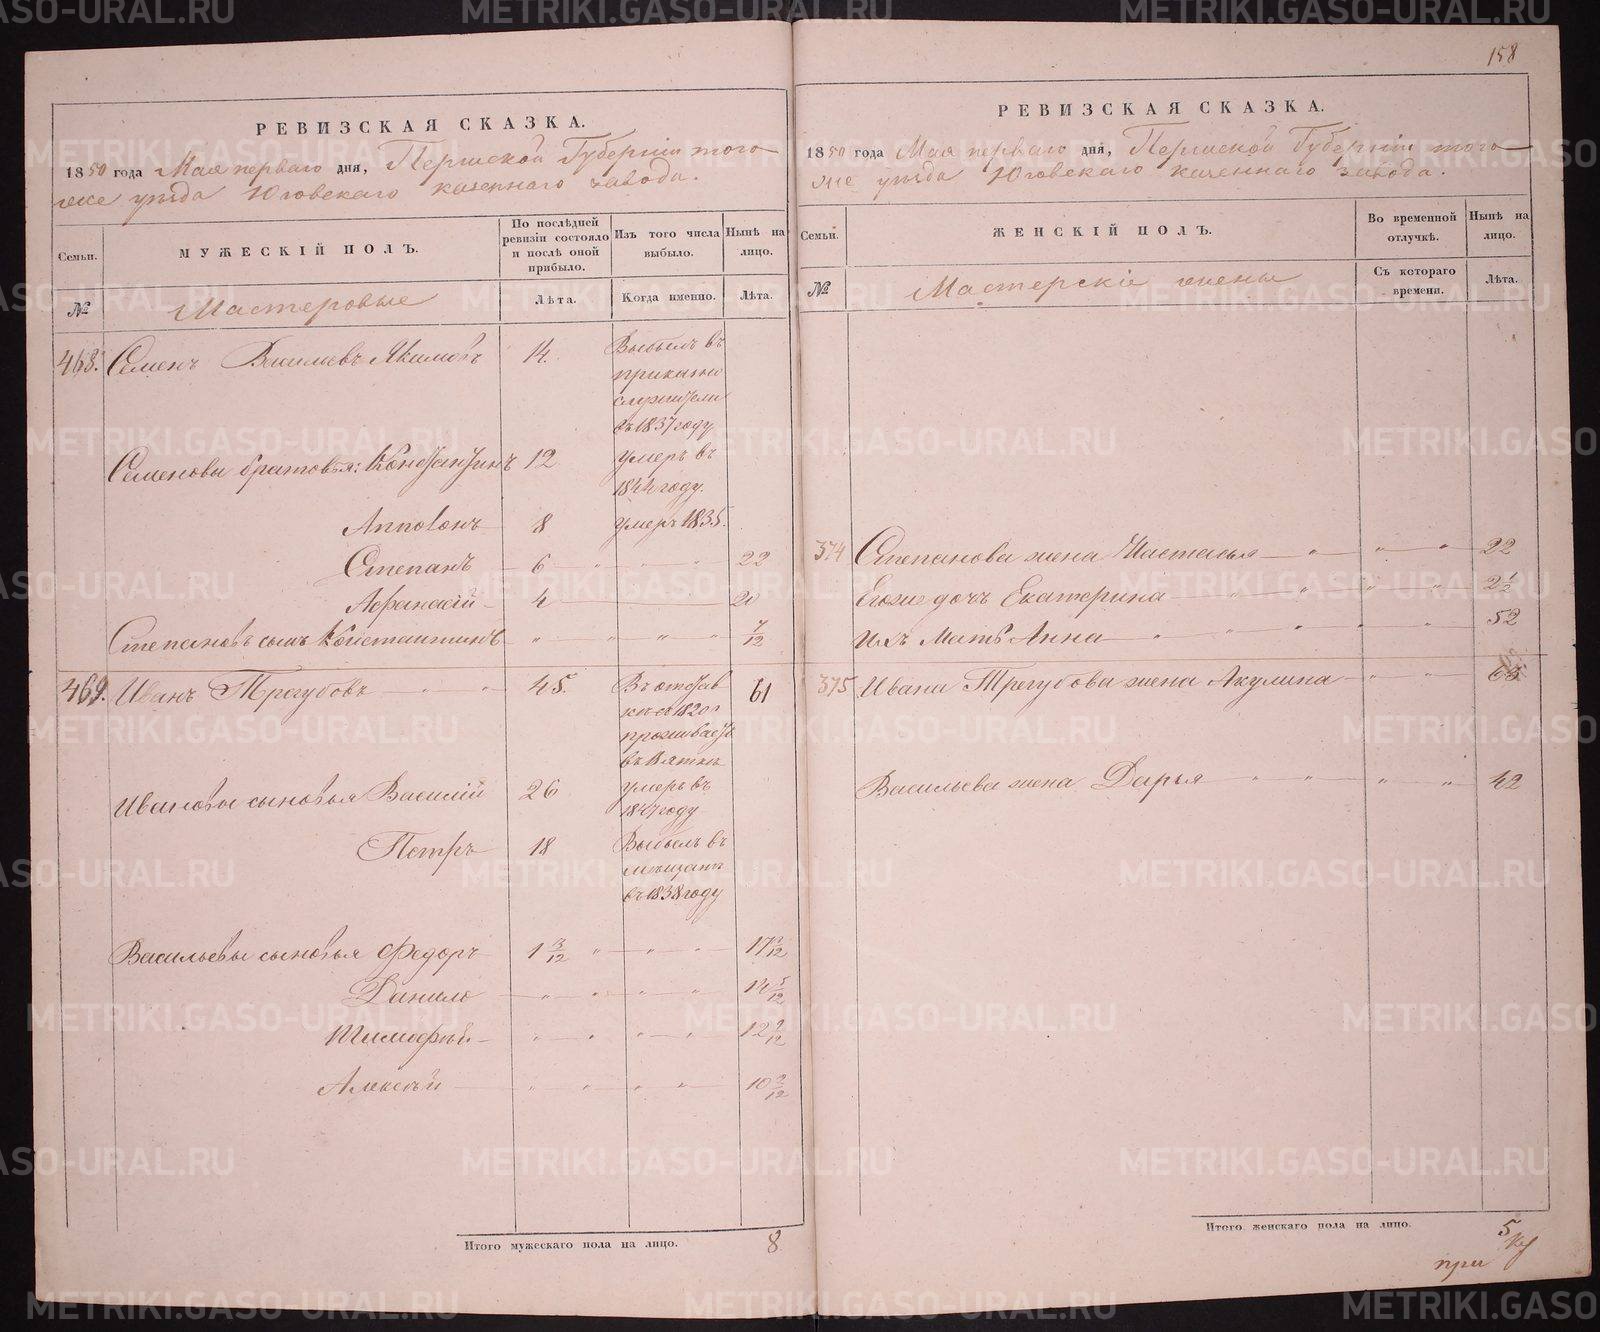 158
РЕВИЗСКАЯ СКАЗКА.
1850 года Мая перваго дня, Пермской Губерніи того
же уѣзда Юговскаго казеннаго завода.
Семьи.
МУЖЕСКІЙ ПОЛЪ.
По послѣдней ревизіи состояло и послѣ оной прибыло.
Изъ того числа выбыло.
Нынѣ на лицо.
№
Мастеровые
Лѣта.
Когда именно.
Лѣта.
468. Семенъ Васильевъ Якимовъ 14. Выбылъ въ
приказно
служители
въ 1837 году
Семеновы братовья: Константинъ 12 умеръ въ
1844 году.
Апполонъ 8 умеръ 1835.
Степанъ 6 " " " 22
Афанасій 4 20
Степановъ сынъ Константинъ " " " " 7/12
469. Иванъ Трегубовъ " " 45. Въ отстав
кѣ съ 1820 г
проживаетъ
въ Вяткѣ
61
Ивановы сыновья Василій 26 умеръ въ
1847 году
Петръ 18 Выбылъ въ
мѣщанъ
въ 1838 году
Васильевы сыновья Федоръ 1 3/12 " " " 17
Данило " " " " 14 5/12
Тимофѣй " " " " 12
Алексѣй " " " " 10
Итого мужескаго пола на лицо. 8
РЕВИЗСКАЯ СКАЗКА.
1850 года Мая перваго дня, Пермской Губерніи того
же уѣзда Юговскаго казеннаго завода.
Семьи.
ЖЕНСКІЙ ПОЛЪ.
Во временной отлучкѣ.
Нынѣ на лицо.
№
Мастерскіе жены
Съ котораго времени.
Лѣта.
374 Степанова жена Настасья " " " 22
Егоже дочь Екатерина " " " " 2 1/2
Ихъ Мать Анна " " " " " 52
375 Ивана Трегубова жена Акулина " "
Васильева жена Дарья " " " " 42
Итого женскаго пола на лицо. 5
при
METRIKI.GASO-URAL.RU